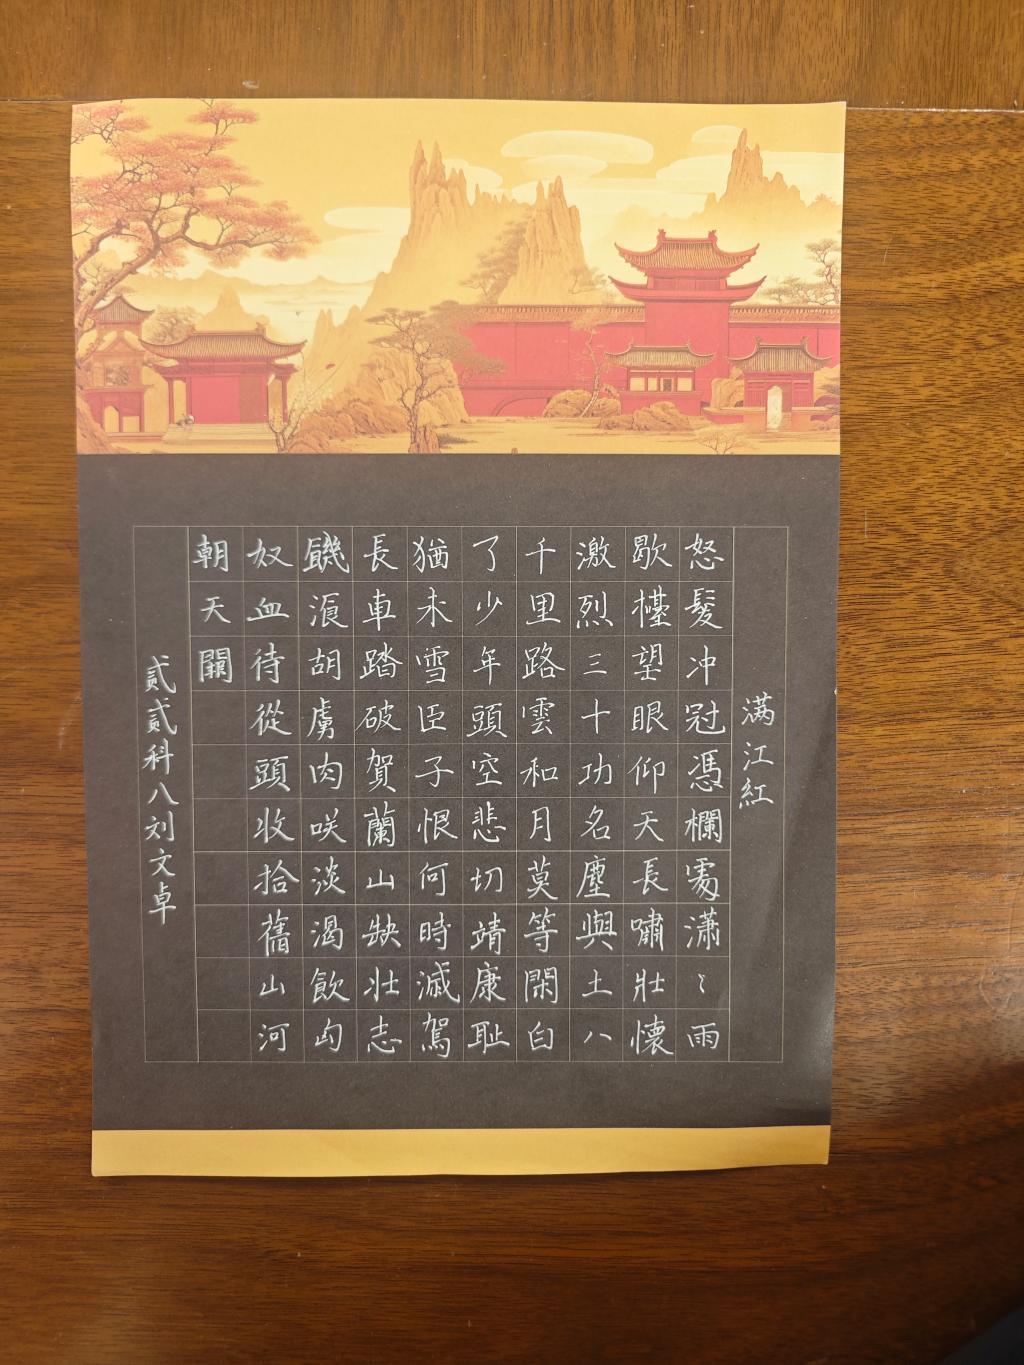 满江紅
怒髮冲冠憑欄處潇〻雨
歇擡望眼仰天長嘯壯懷
激烈三十功名塵與土八
千里路雲和月莫等閑白
了少年頭空悲切靖康耻
猶未雪臣子恨何時滅駕
長車踏破賀蘭山缺壮志
饑湌胡虜肉咲淡渴飲匈
奴血待從頭收拾舊山河
朝天闕
貳貳科八刘文卓